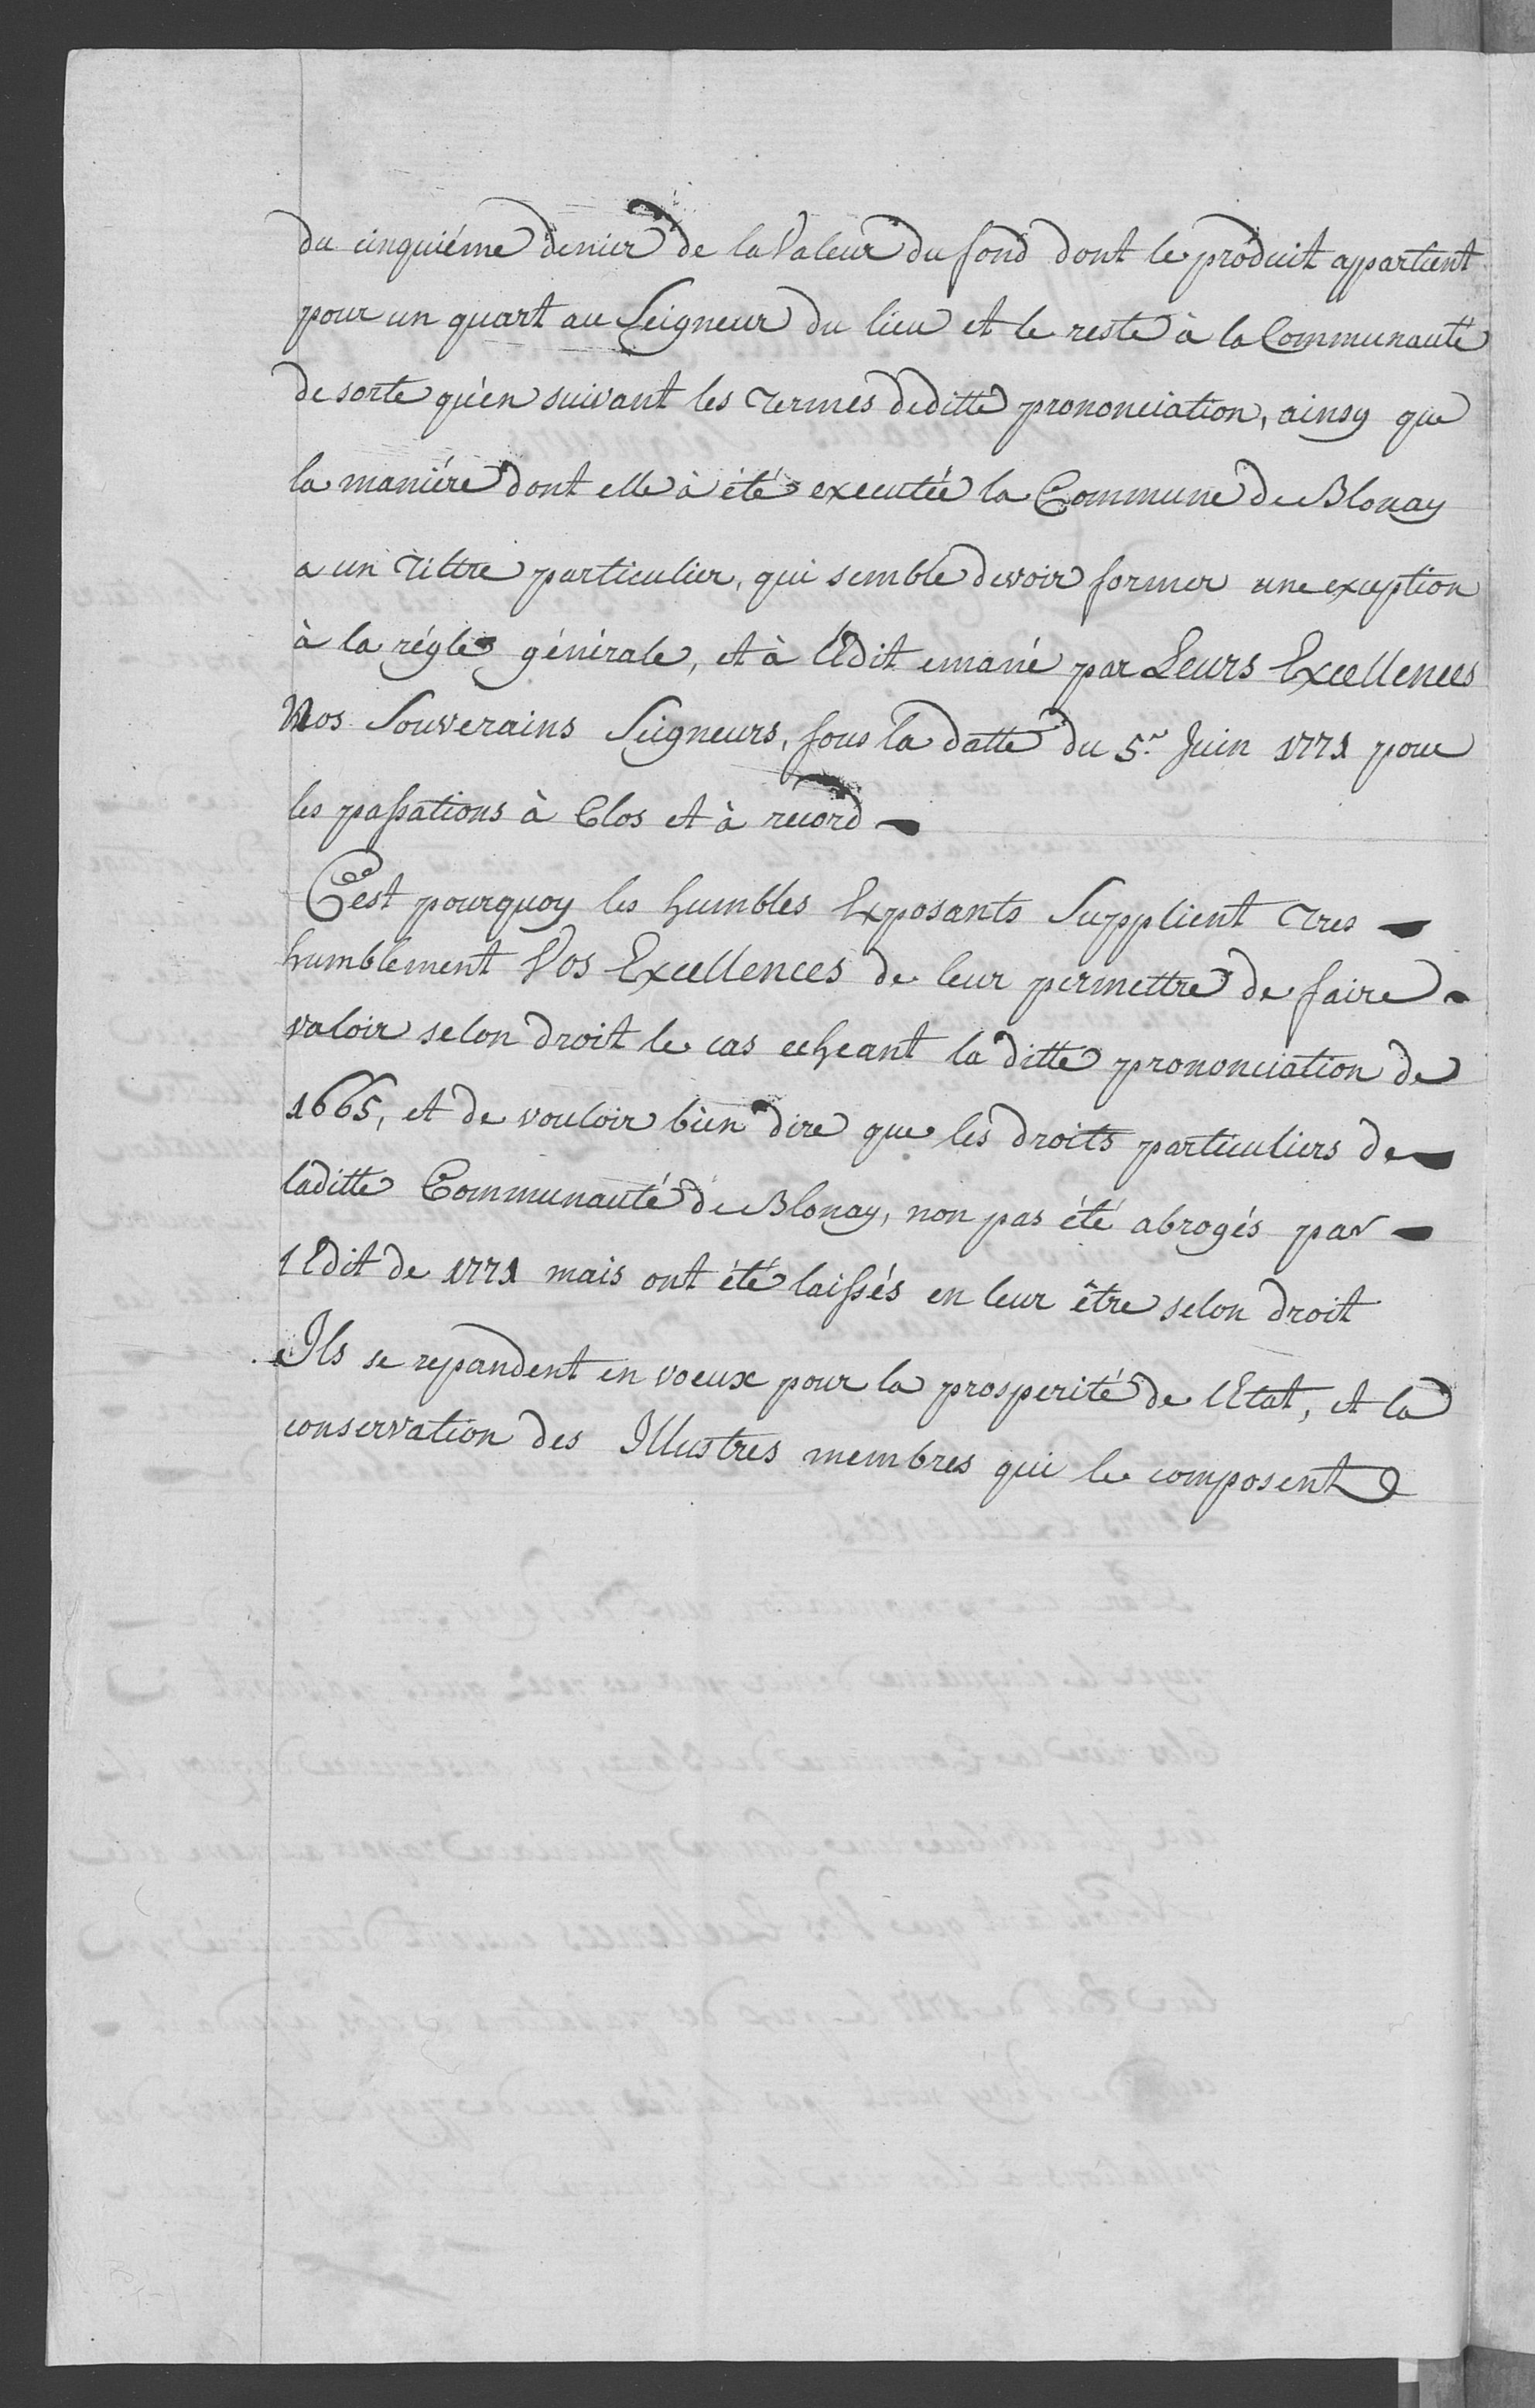 du cinquiéme denier de la Valeur du fond dont le produit appartient
pour un quart au Seigneur du lieu et le reste à la Communauté
de sorte qu'en suivant les Termes de ditte prononciation, ainsy que
la maniére dont elle à été executée la Commune de Blonay
a un Tiltre particulier, qui semble devoir former une exception
à la régle générale, et à l'Edit emané par Leurs Excellences
Nos Souverains Seigneurs, sous la datte du 5.e Juin 1771 pour
les passations à Clos et à record
C'est pourquoy les humbles Exposants Supplient Tres
humblement Vos Excellences de leur permettre de faire
valoir selon droit le cas echeant la ditte prononciation de
1665, et de vouloir bien dire que les droits particuliers de
laditte Communauté de Blonay, non pas été abrogés par
l Edit de 1771 mais ont été laissés en leur être selon droit
Ils se repandent en voeux pour la prosperité de l'Etat, et la
conservation des Illustres membres qui le composent